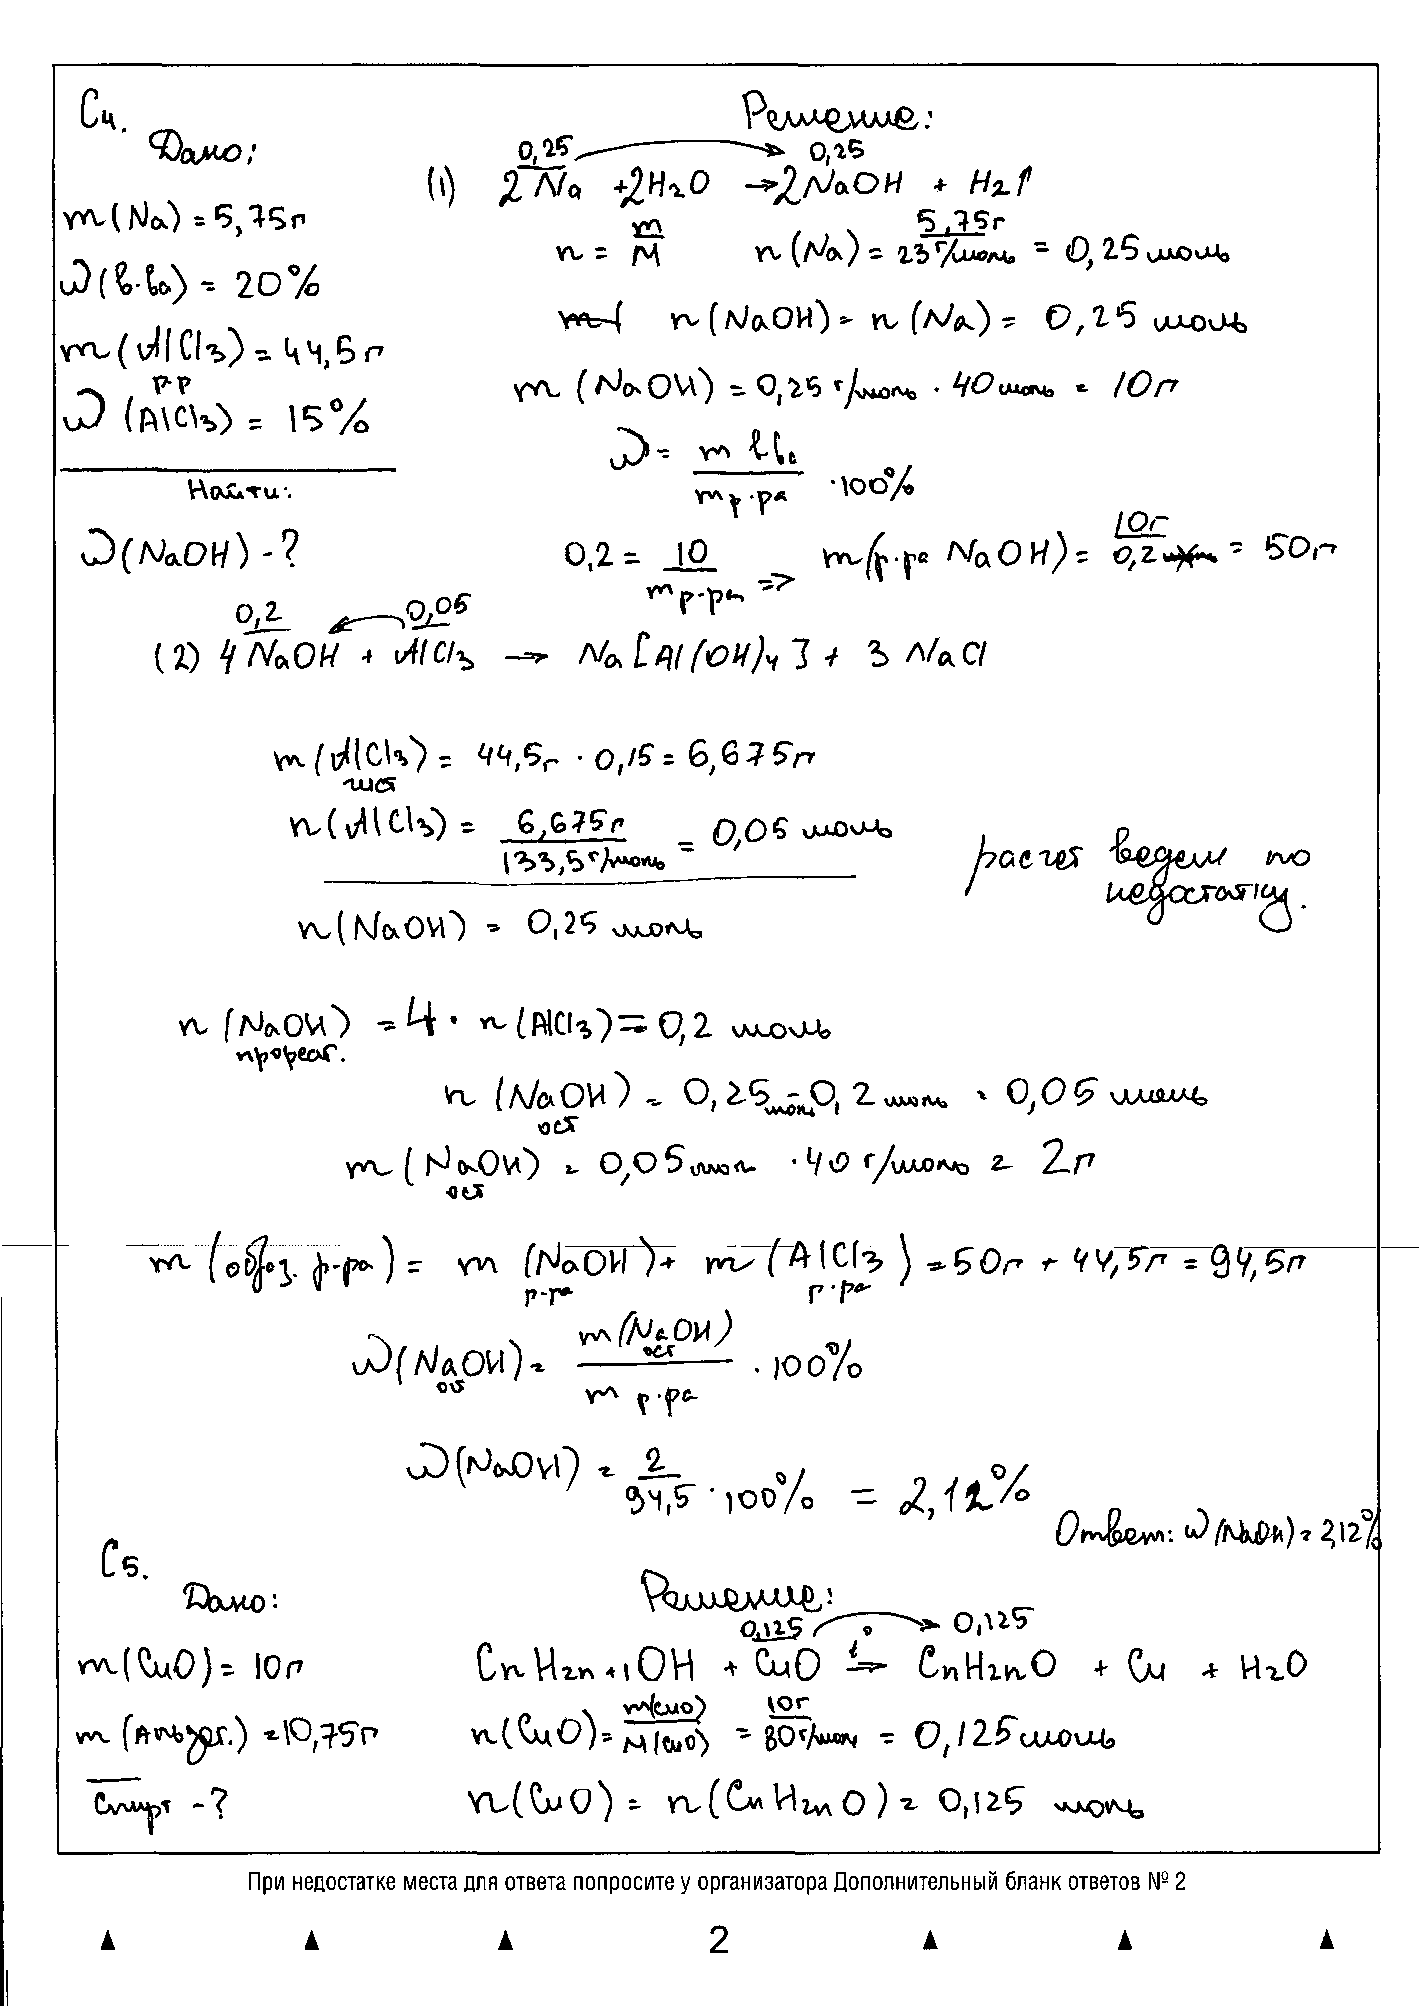 С4.
Дано:
Решение:
m(Na) = 5,75г
ω(в-ва) = 20%
m(AlCl3) = 44,5г
р-р
ω(AlCl3) = 15%
Найти:
ω(NaOH) - ?
0,25 0,25
(1) 2Na + 2H2O → 2NaOH + H2↑
n = m/M n(Na) = 5,75г/23г/моль = 0,25 моль
n(NaOH) = n(Na) = 0,25 моль
m(NaOH) = 0,25 г/моль · 40 моль = 10г
ω = m в-ва/m р-ра · 100%
0,2 = 10/m р-ра => m(р-ра NaOH) = 10г/0,2 = 50г
0,2 0,05
(2) 4NaOH + AlCl3 → Na[Al(OH)4] + 3NaCl
m(AlCl3) = 44,5г · 0,15 = 6,675г
чист
n(AlCl3) = 6,675г/133,5г/моль = 0,05 моль
расчет ведем по
недостатку.
n(NaOH) = 0,25 моль
n(NaOH) = 4 · n(AlCl3) = 0,2 моль
прореаг.
n(NaOH) = 0,25моль - 0,2 моль = 0,05 моль
ост
m(NaOH) = 0,05моль · 40 г/моль = 2г
ост
m(образ. р-ра) = m(NaOH) + m(AlCl3) = 50г + 44,5г = 94,5г
р-ра р-ра
ω(NaOH) = m(NaOH)/m р-ра · 100%
ост ост
ω(NaOH) = 2/94,5 · 100% = 2,12%
Ответ: ω(NaOH) = 2,12%
С5.
Дано:
Решение:
m(CuO) = 10г
m(Альдег.) = 10,75г
Спирт - ?
0,125 0,125
CnH2n+1OH + CuO t°→ CnH2nO + Cu + H2O
n(CuO) = m(CuO)/M(CuO) = 10г/80г/моль = 0,125моль
n(CuO) = n(CnH2nO) = 0,125 моль
При недостатке места для ответа попросите у организатора Дополнительный бланк ответов № 2
2